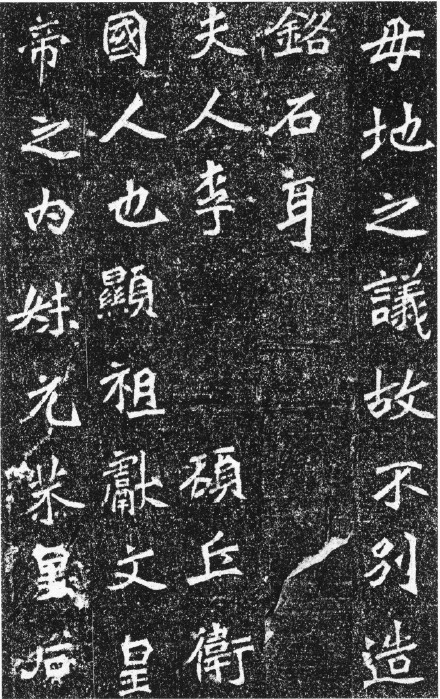 母地之議故不別造
銘石耳
夫人李 頓丘衛
國人也顯祖獻文皇
帝之内妹元恭皇后